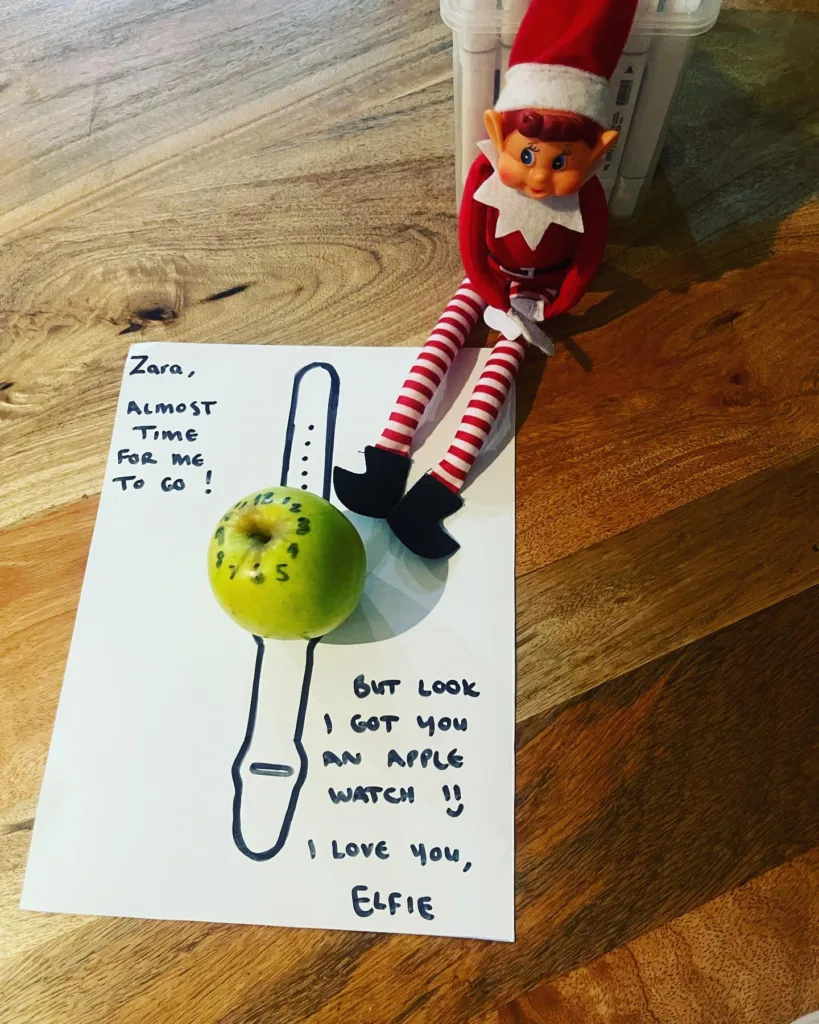 Zara,
ALMOST
TIME
FOR ME
TO GO !
12
2
3
4
5
6
7
8
9
BUT LOOK
I GOT YOU
AN APPLE
WATCH !!
I LOVE YOU,
ELFIE